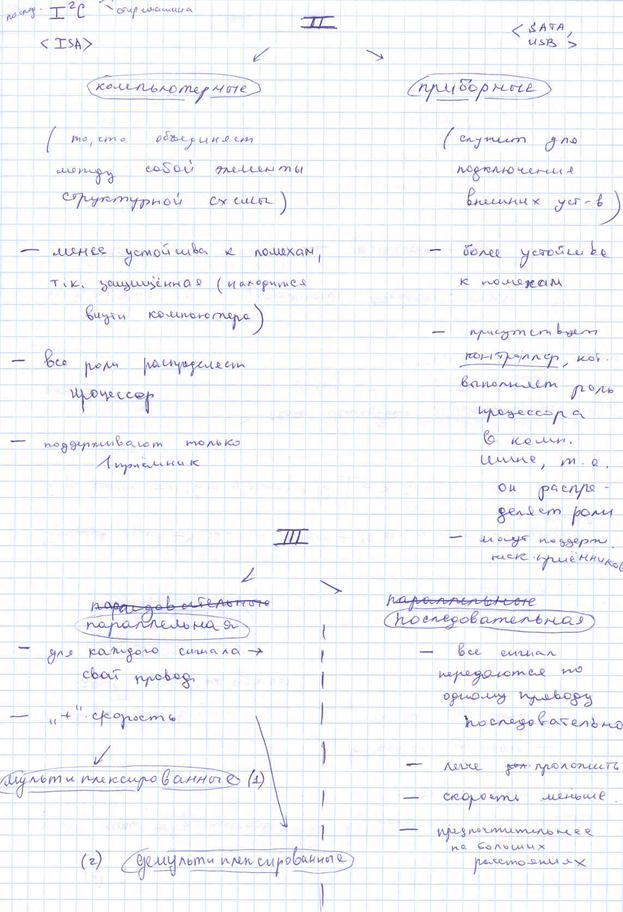 послед. I²C стир. машина
II
<ISA>
<SATA,
USB>
компьютерные
приборные
(то, что объединяет
между собой элементы
структурной схемы)
(служит для
подключения
внешних уст-в)
— менее устойчива к помехам,
т.к. защищённая (находится
внутри компьютера)
— все роли распределяет
процессор
— поддерживают только
1 приёмник
— более устойчива
к помехам
— присутствует
контроллер, кот.
выполняет роль
процессора
в комп.
шине, т.е.
он распре-
деляет роли
— могут поддерж.
неск. приёмников
III
параллельная
— для каждого сигнала →
свой провод
— „+" скорость
мультиплексированные (1)
(2) демультиплексированные
параллельные
последовательная
— все сигнал
передаются по
одному проводу
последовательно
— легче проложить
— скорость меньше.
— предпочтительнее
на больших
расстояниях